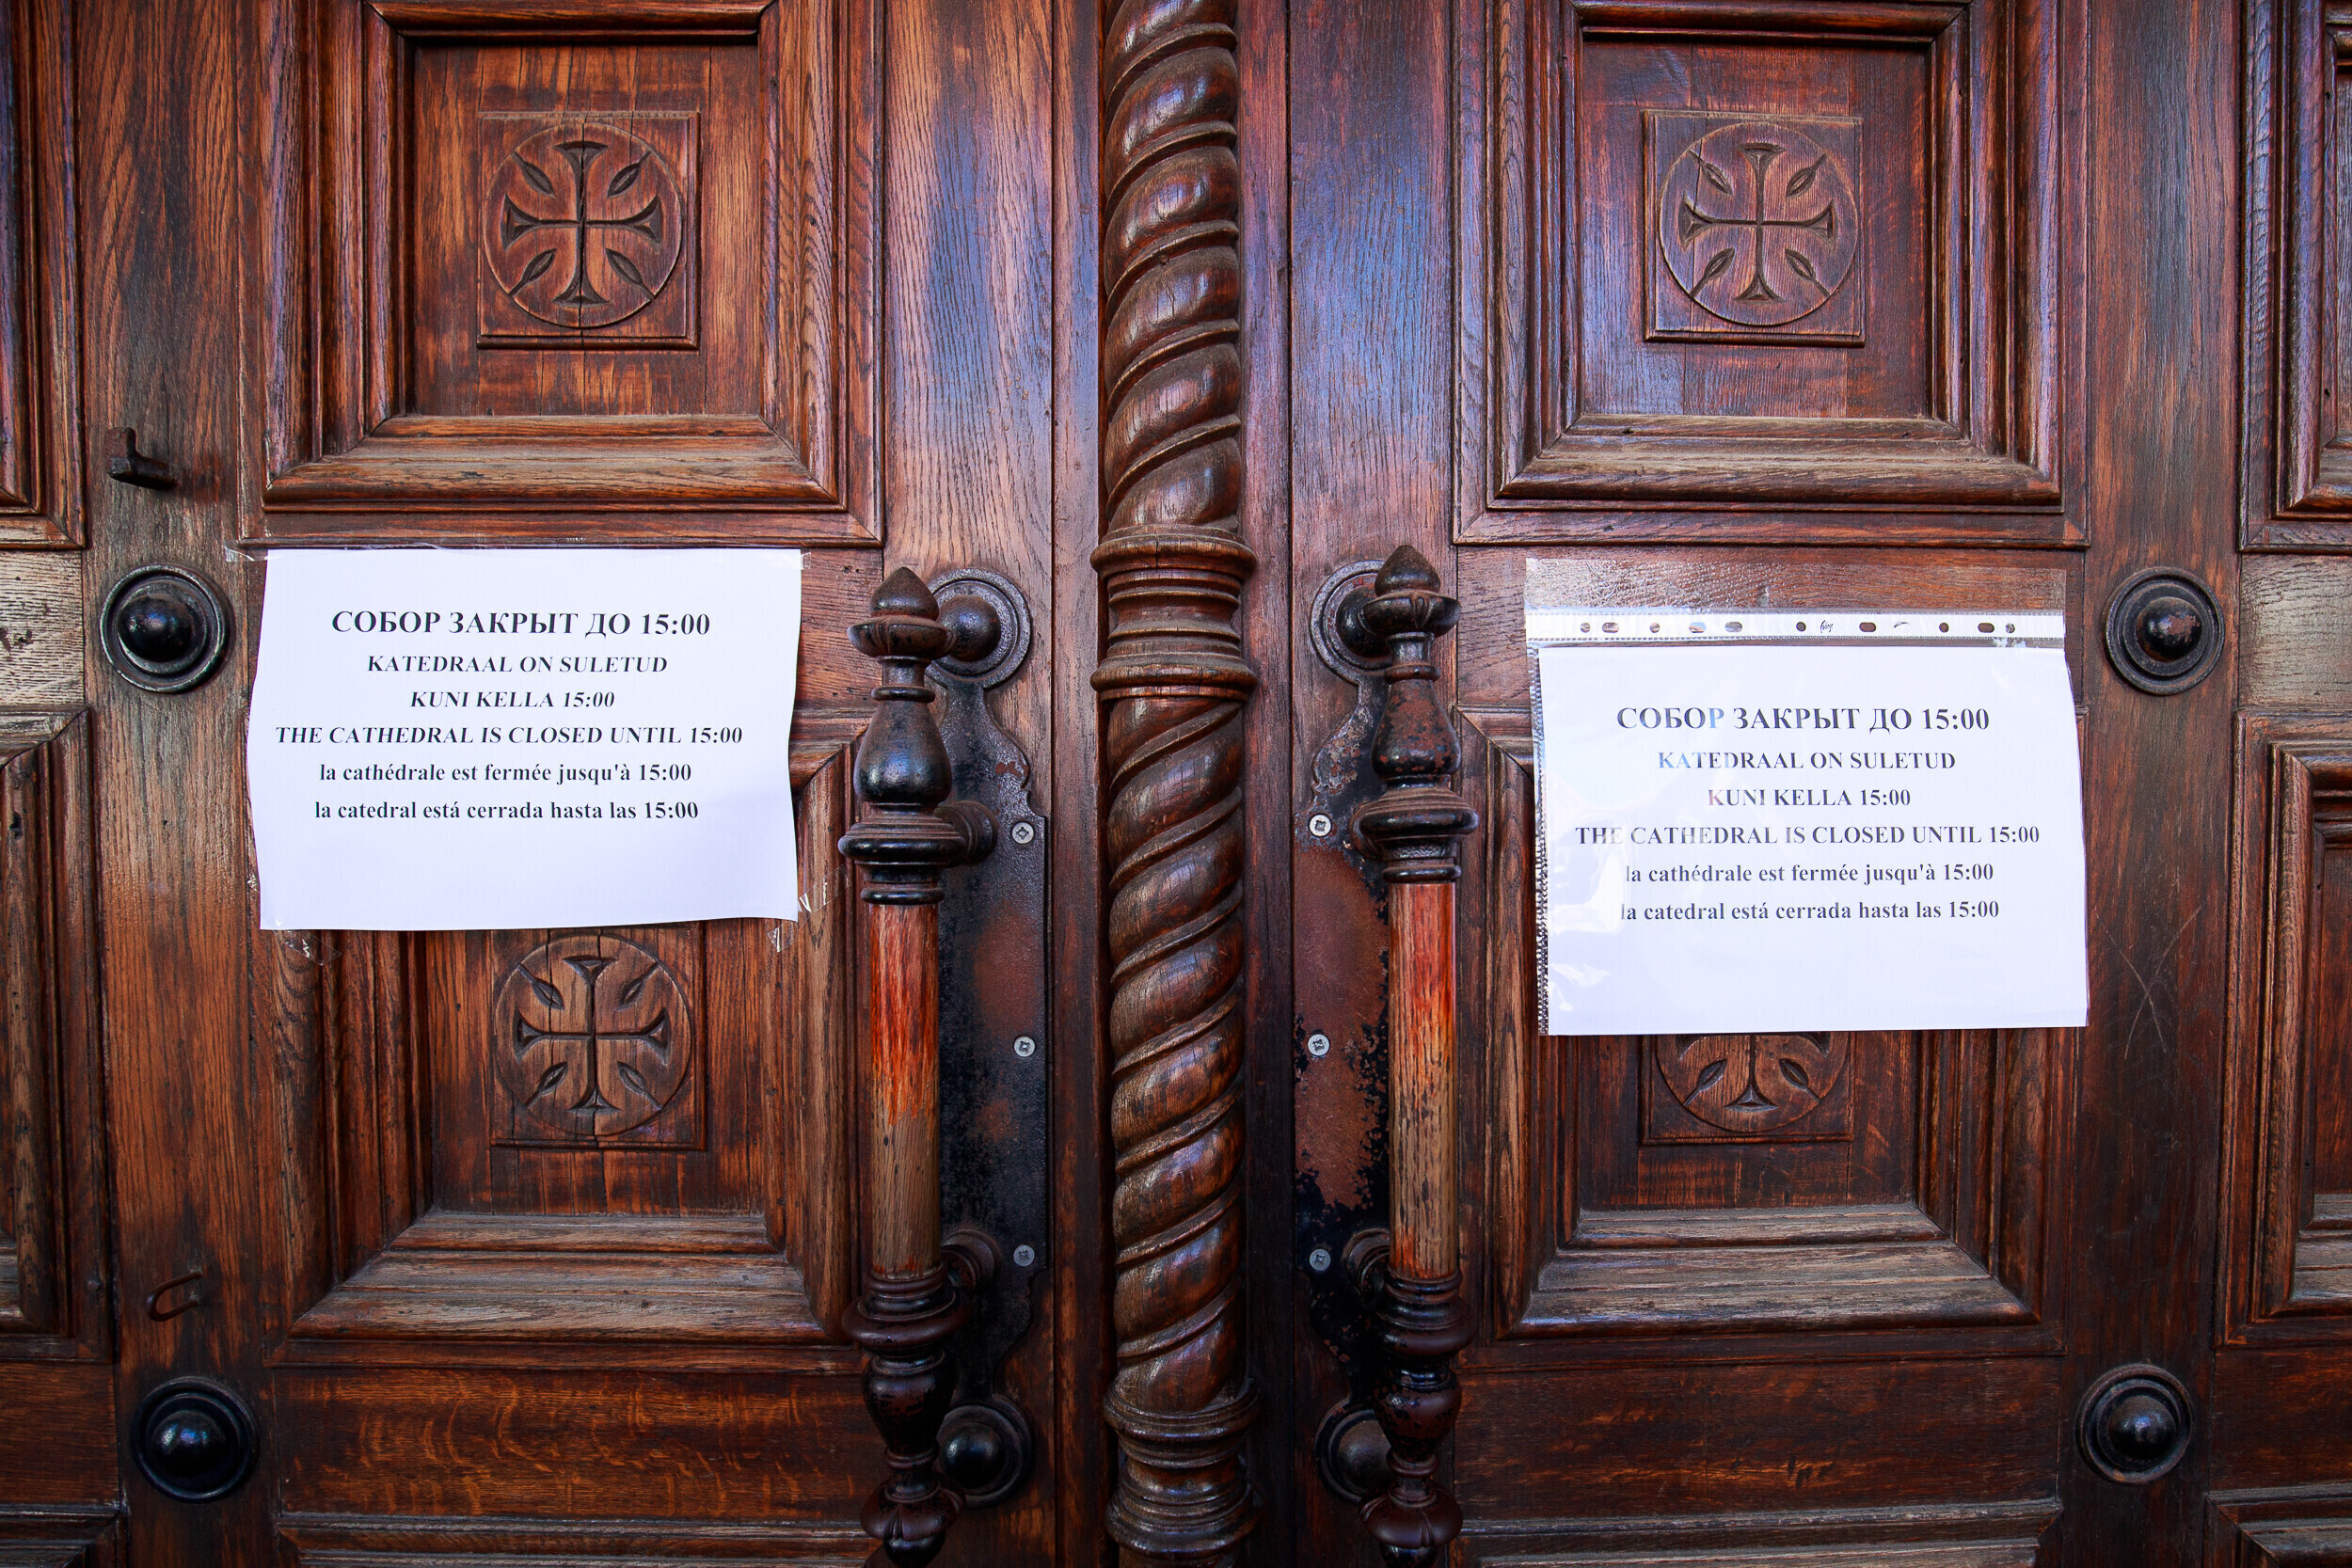 СОБОР ЗАКРЫТ ДО 15:00
KATEDRAAL ON SULETUD
KUNI KELLA 15:00
THE CATHEDRAL IS CLOSED UNTIL 15:00
la cathédrale est fermée jusqu'à 15:00
la catedral está cerrada hasta las 15:00
СОБОР ЗАКРЫТ ДО 15:00
KATEDRAAL ON SULETUD
KUNI KELLA 15:00
THE CATHEDRAL IS CLOSED UNTIL 15:00
la cathédrale est fermée jusqu'à 15:00
la catedral está cerrada hasta las 15:00